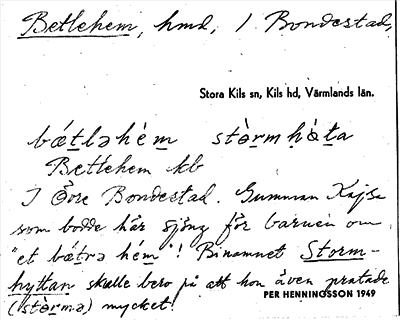 Betlehem, hmd, I Bondestad,
Stora Kils sn, Kils hd, Värmlands län.
bǽtləhém stòrmhàta
Betlehem kb
I Öre Bondestad. Gumman Kajsa
som bodde här sjöng för barnen om
"et bǽtrə hém"! Binamnet Storm-
hyttan skulle bero på att hon även pratade
(stòrmə) mycket!
PER HENNINGSSON 1949